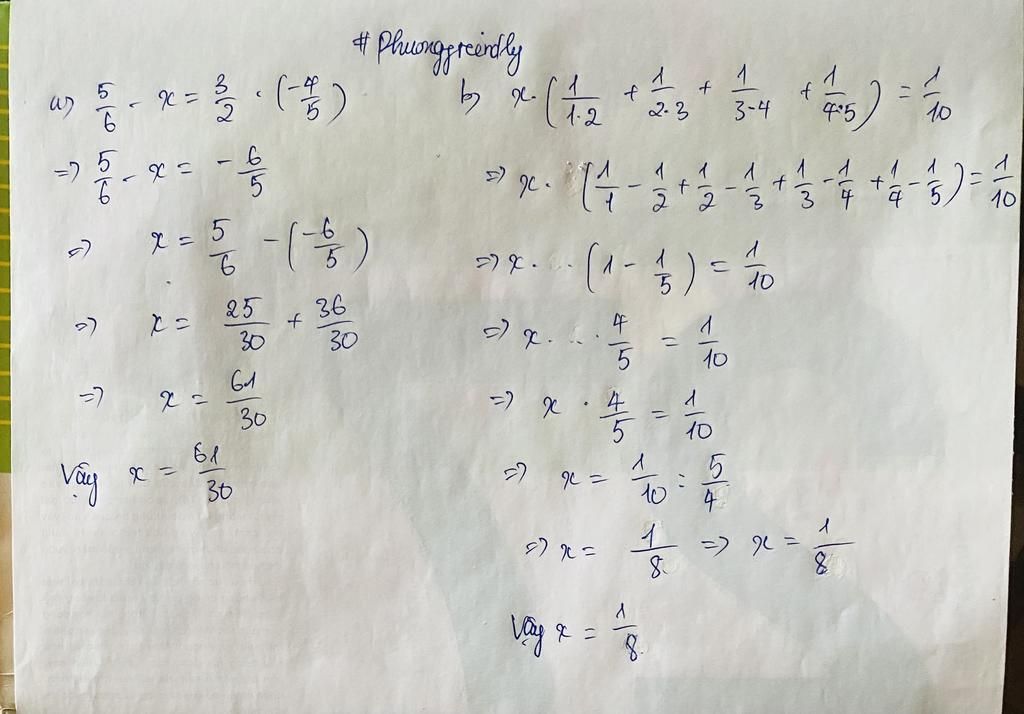 #Phuonggreindly
a) 5/6 - x = 3/2 . (-4/5)
=> 5/6 - x = -6/5
=> x = 5/6 - (-6/5)
=> x = 25/30 + 36/30
=> x = 61/30
Vậy x = 61/30
b) x . (1/1.2 + 1/2.3 + 1/3-4 + 1/4.5) = 1/10
=> x . (1/1 - 1/2 + 1/2 - 1/3 + 1/3 - 1/4 + 1/4 - 1/5) = 1/10
=> x . (1 - 1/5) = 1/10
=> x . 4/5 = 1/10
=> x . 4/5 = 1/10
=> x = 1/10 : 5/4
=> x = 1/8 => x = 1/8
Vậy x = 1/8